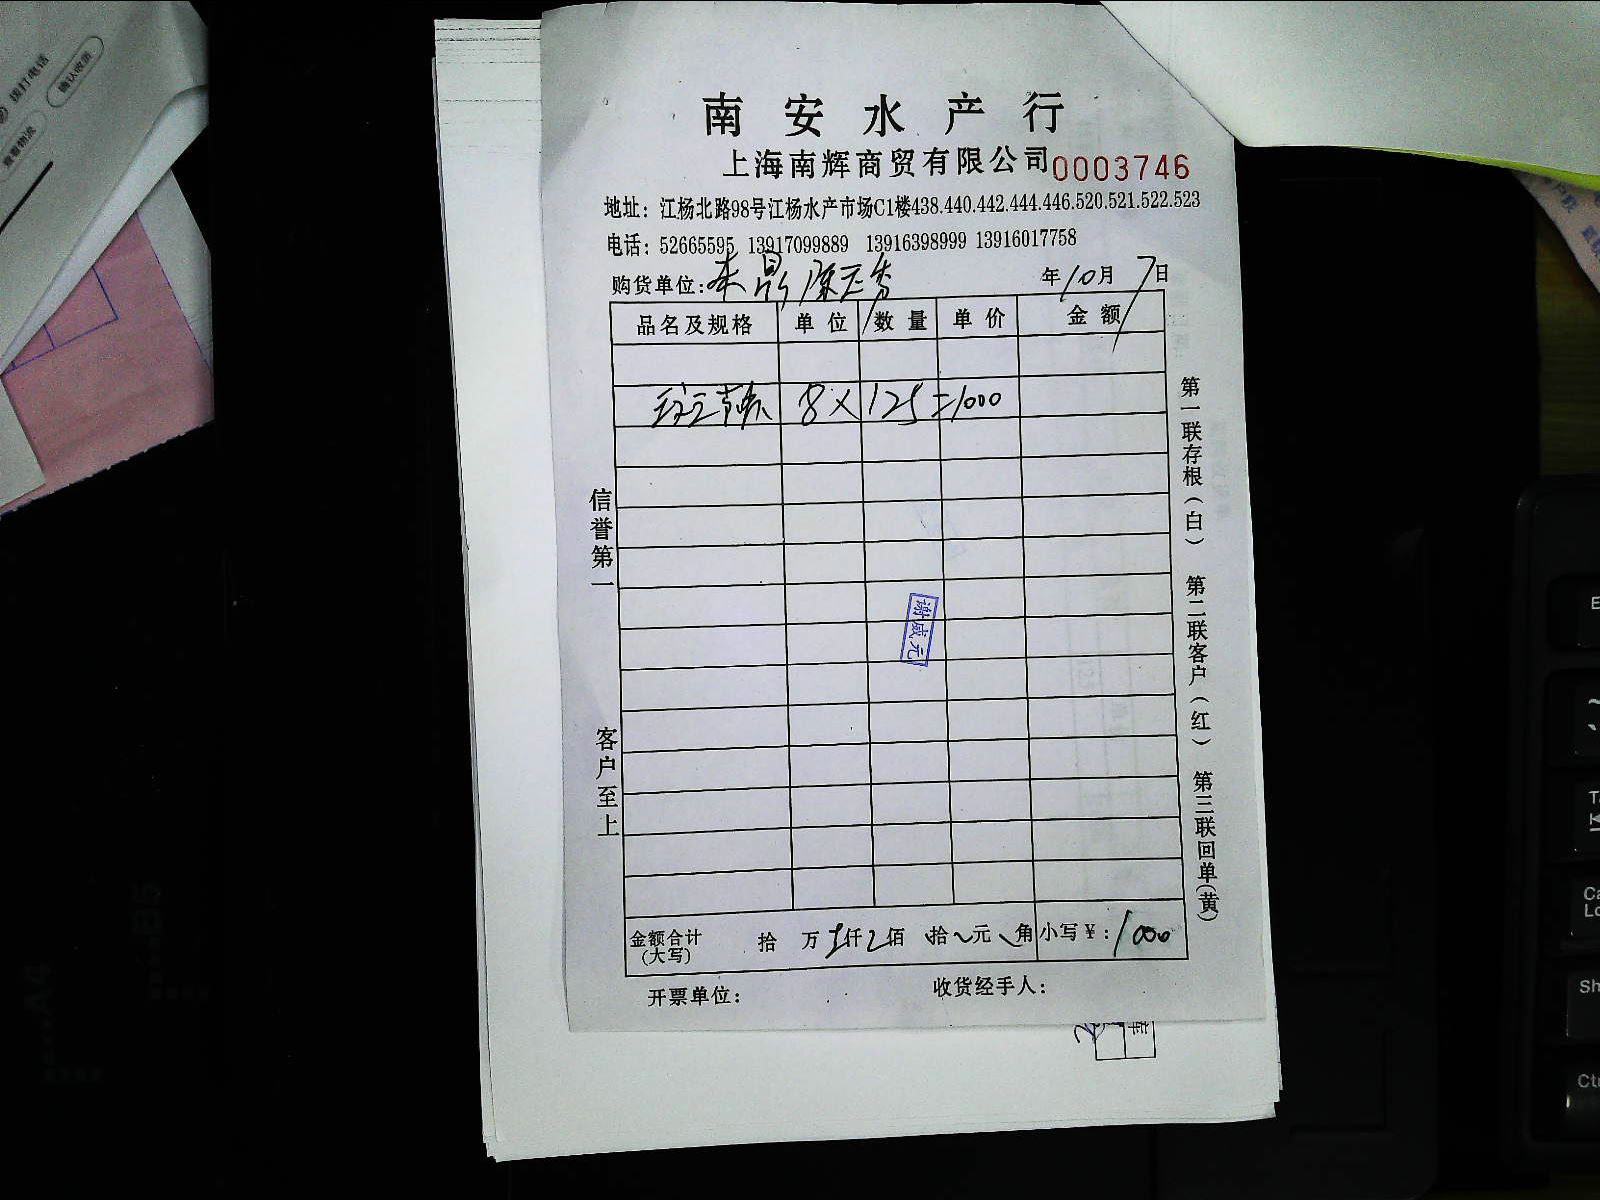 南安水产行
上海南辉商贸有限公司 0003746
地址：江杨北路98号江杨水产市场C1楼438.440.442.444.446.520.521.522.523
电话：52665595 13917099889 13916398999 13916017758
购货单位： 年10月7日
品名及规格 单位 数量 单价 金额
8×125=1000
金额合计 拾 万 仟 佰 拾 元 角 小写¥：1000
(大写)
开票单位： 收货经手人：
信誉第一
客户至上
第一联存根（白） 第二联客户（红） 第三联回单（黄）
谢咸元
拨打电话
确认收货
查看物流
库